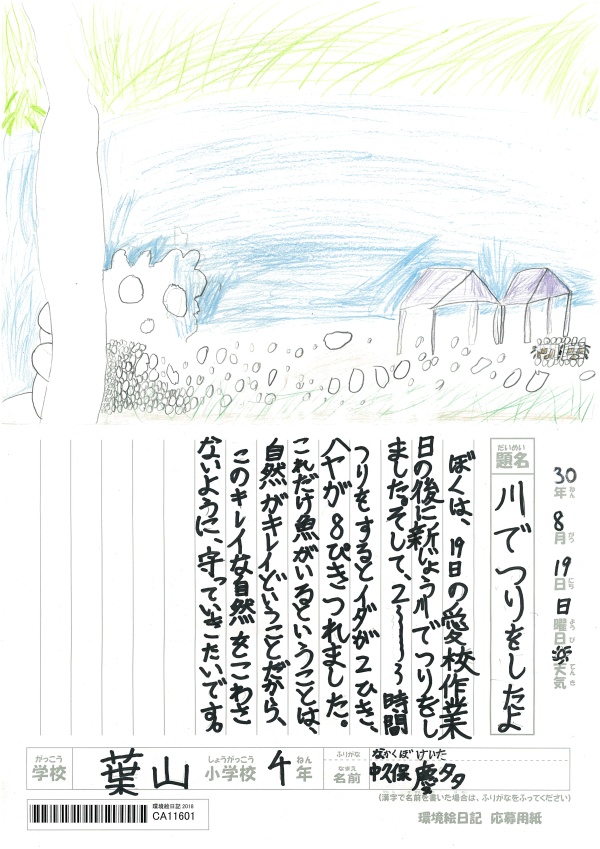 30年 8月 19日 日曜日 天気
ねん がつ にち ようび てんき
だいめい
題名 川でつりをしたよ
ぼくは、19日の愛校作業
日の後に新じょう川でつりをし
ました。そして、2〜3時間
つりをするとイダが2ひき、
ハヤが8ぴきつれました。
これだけ魚がいるということは、
自然がキレイということだから、
このキレイな自然をこわさ
ないように、守っていきたいです。
がっこう しょうがっこう ねん
学校 葉山 小学校 4年
ふりがな なかくぼ けいた
なまえ
名前 中久保 慶タ
(漢字で名前を書いた場合は、ふりがなをふってください)
環境絵日記2018
CA11601
環境絵日記 応募用紙